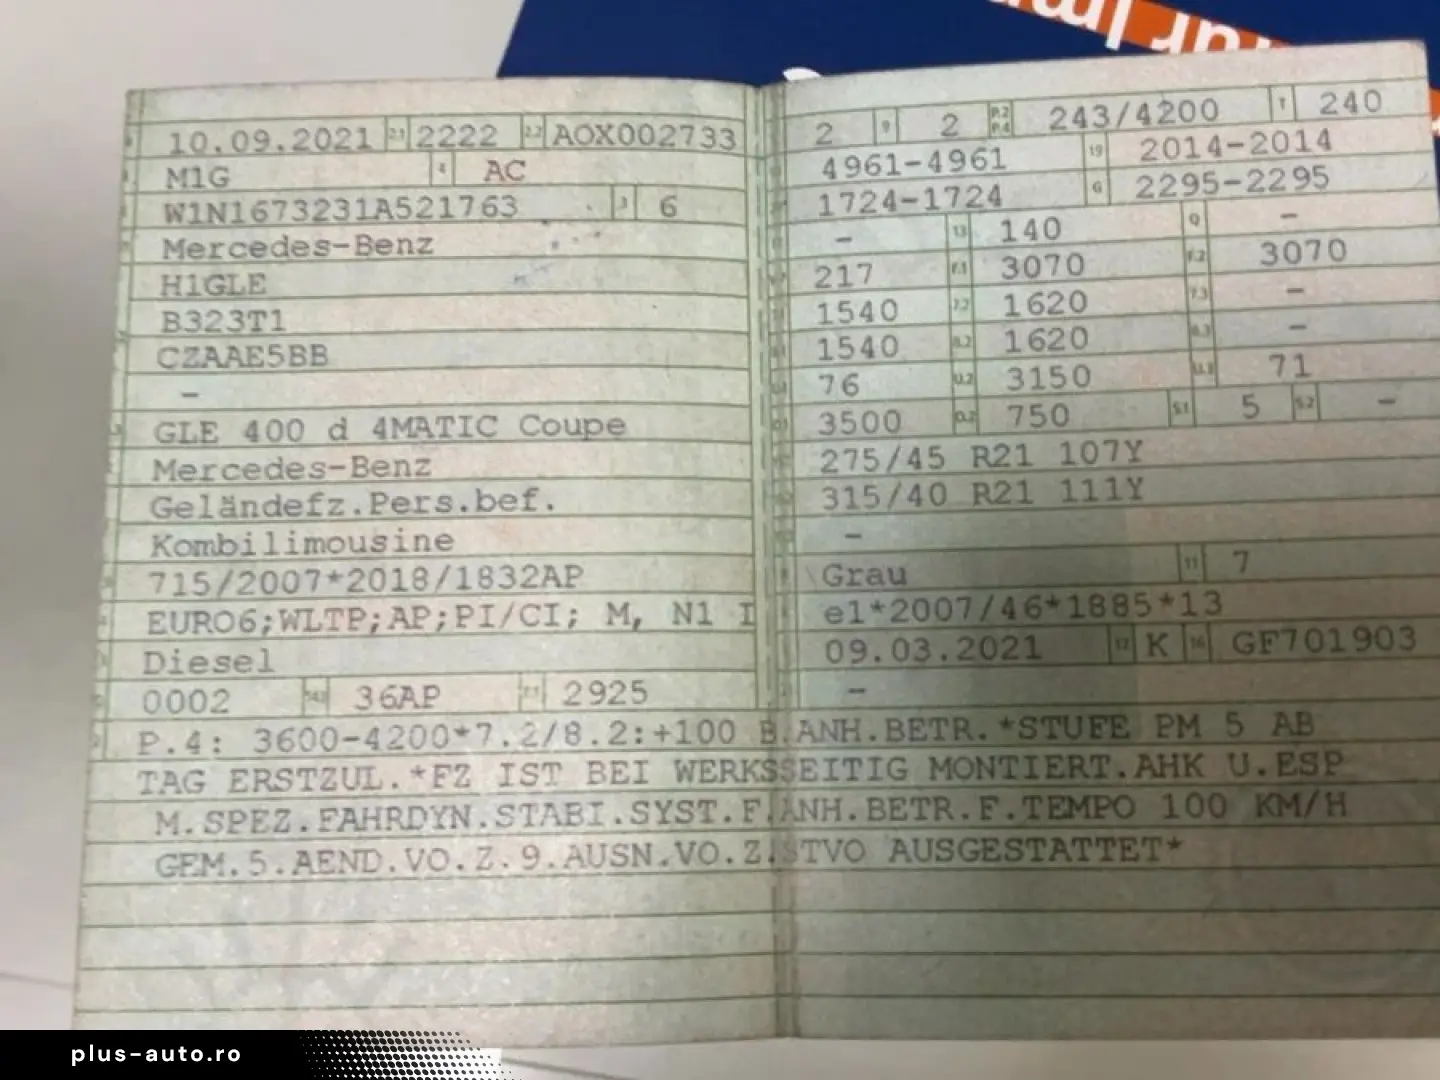 10.09.2021 2.1 2222 2.2 AOX002733
M1G 4 AC
W1N1673231A521763 3 6
Mercedes-Benz
H1GLE
B323T1
CZAAE5BB
-
GLE 400 d 4MATIC Coupe
Mercedes-Benz
Geländefz.Pers.bef.
Kombilimousine
715/2007*2018/1832AP
EURO6;WLTP;AP;PI/CI; M, N1 I
Diesel
0002 14.1 36AP P.1 2925
2 9 2 P.2 P.4 243/4200 T 240
4961-4961 19 2014-2014
1724-1724 G 2295-2295
- 13 140 Q -
217 F.1 3070 F.2 3070
1540 7.2 1620 7.3 -
1540 8.2 1620 8.3 -
76 U.2 3150 U.3 71
3500 O.2 750 S.1 5 S.2 -
275/45 R21 107Y
315/40 R21 111Y
-
Grau 11 7
e1*2007/46*1885*13
09.03.2021 17 K 16 GF701903
-
P.4: 3600-4200*7.2/8.2:+100 B.ANH.BETR.*STUFE PM 5 AB
TAG ERSTZUL.*FZ IST BEI WERKSSEITIG MONTIERT.AHK U.ESP
M.SPEZ.FAHRDYN.STABI.SYST.F.ANH.BETR.F.TEMPO 100 KM/H
GEM.5.AEND.VO.Z.9.AUSN.VO.Z.STVO AUSGESTATTET*
plus-auto.ro